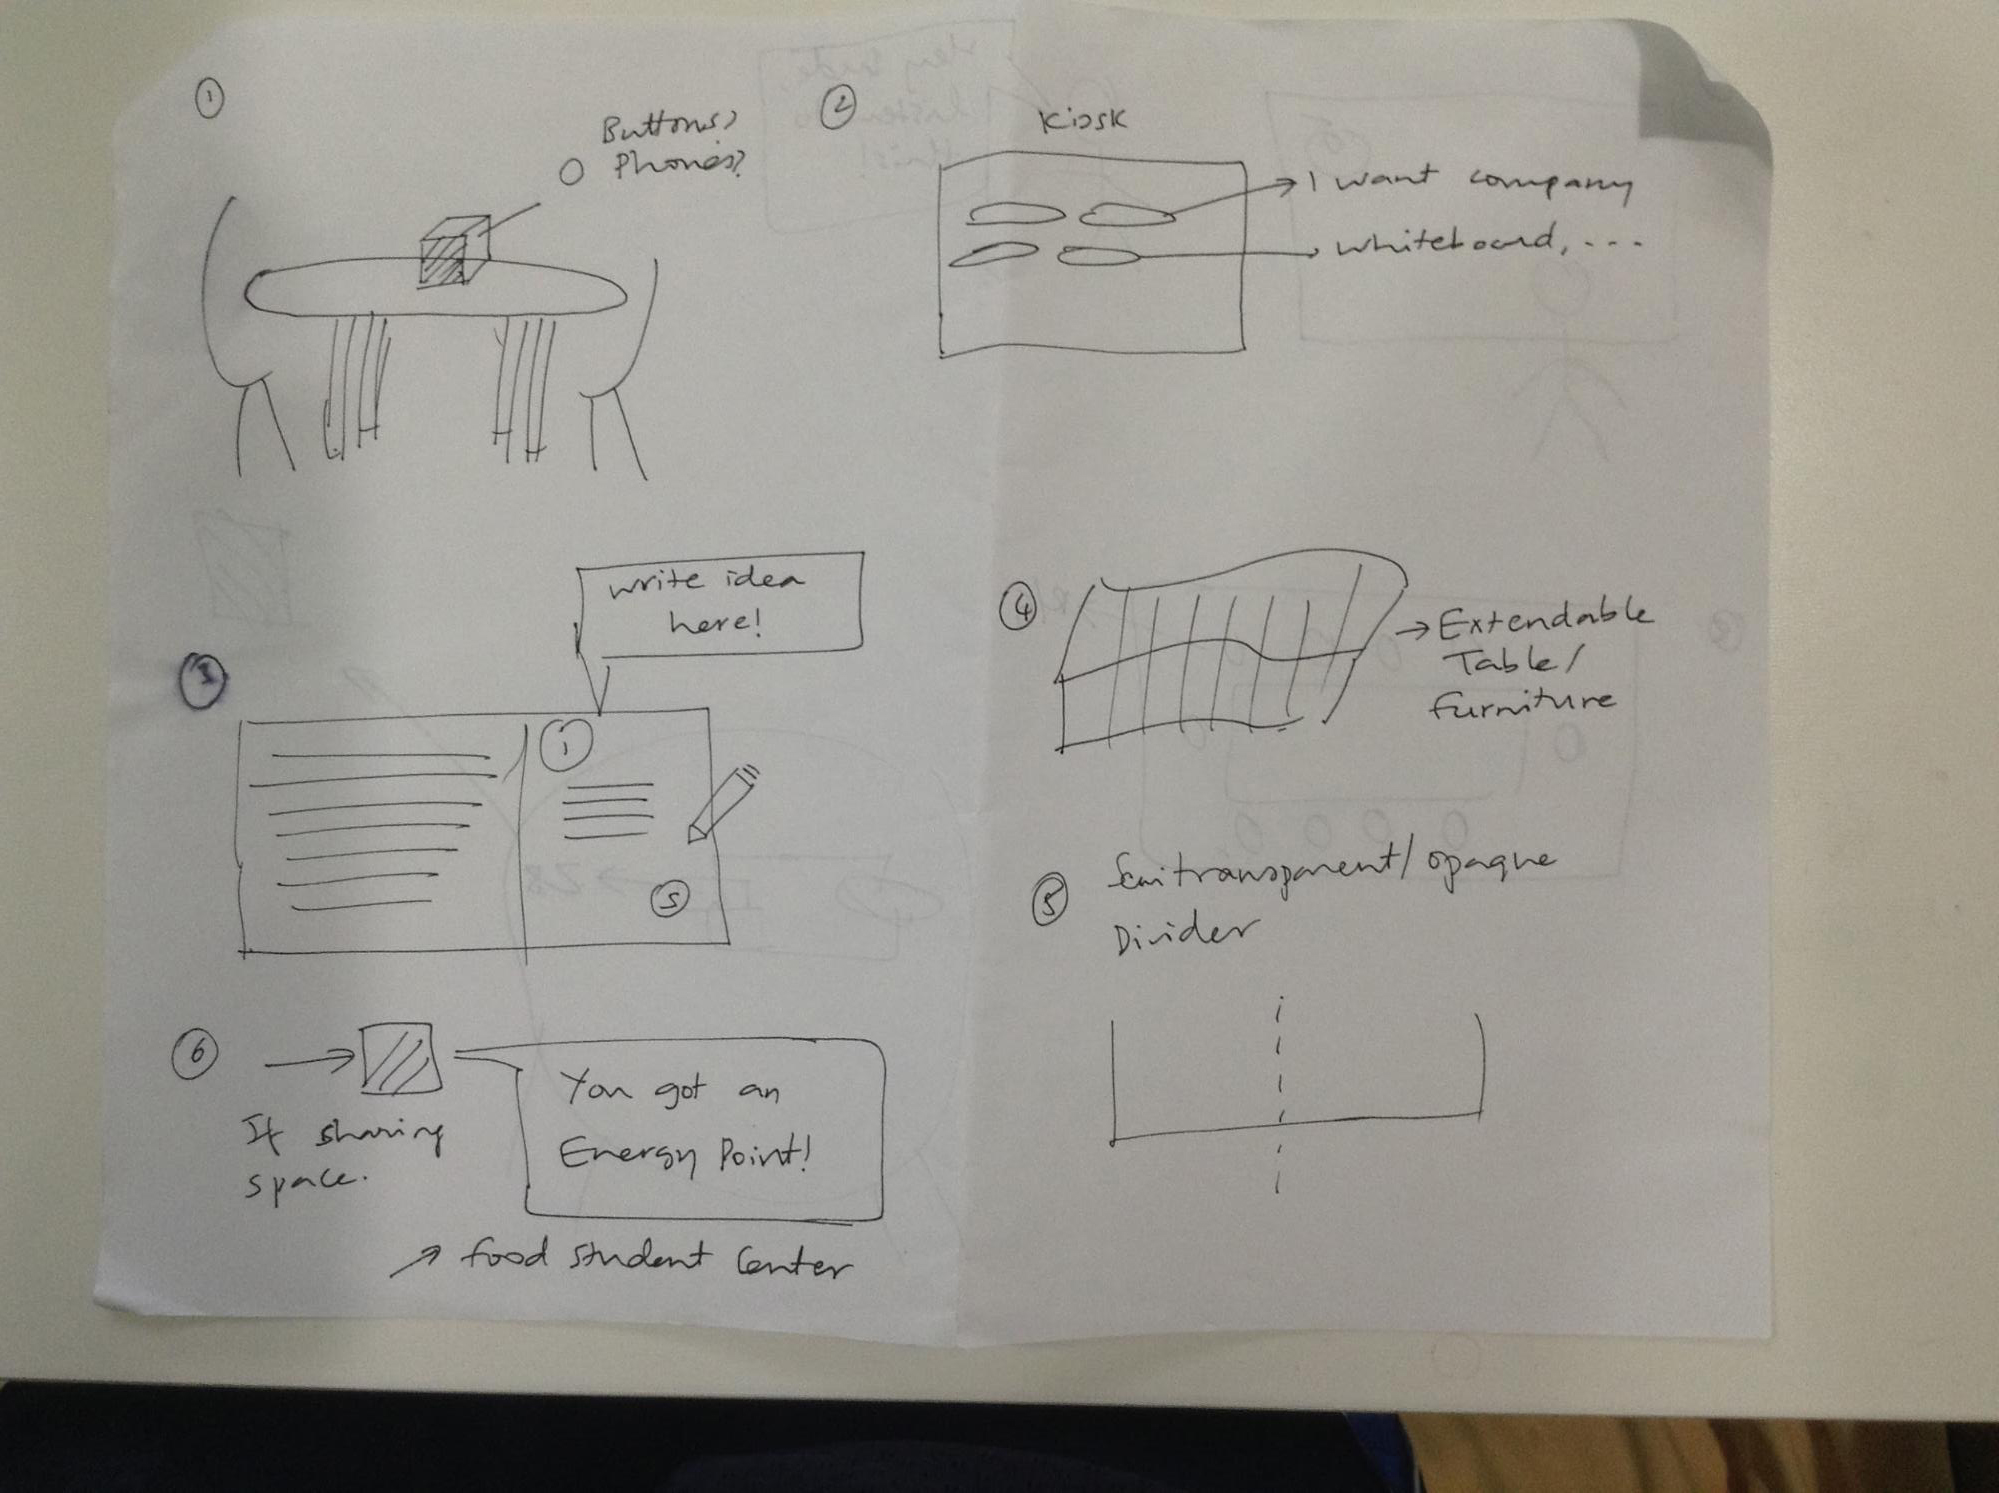 1
Buttons?
Phones?
2
Kiosk
I want company
whiteboard, ...
3
write idea
here!
1
5
4
Extendable
Table/
furniture
5
Semitransparent/opaque
Divider
6
If sharing
space.
You got an
Energy Point!
food student center